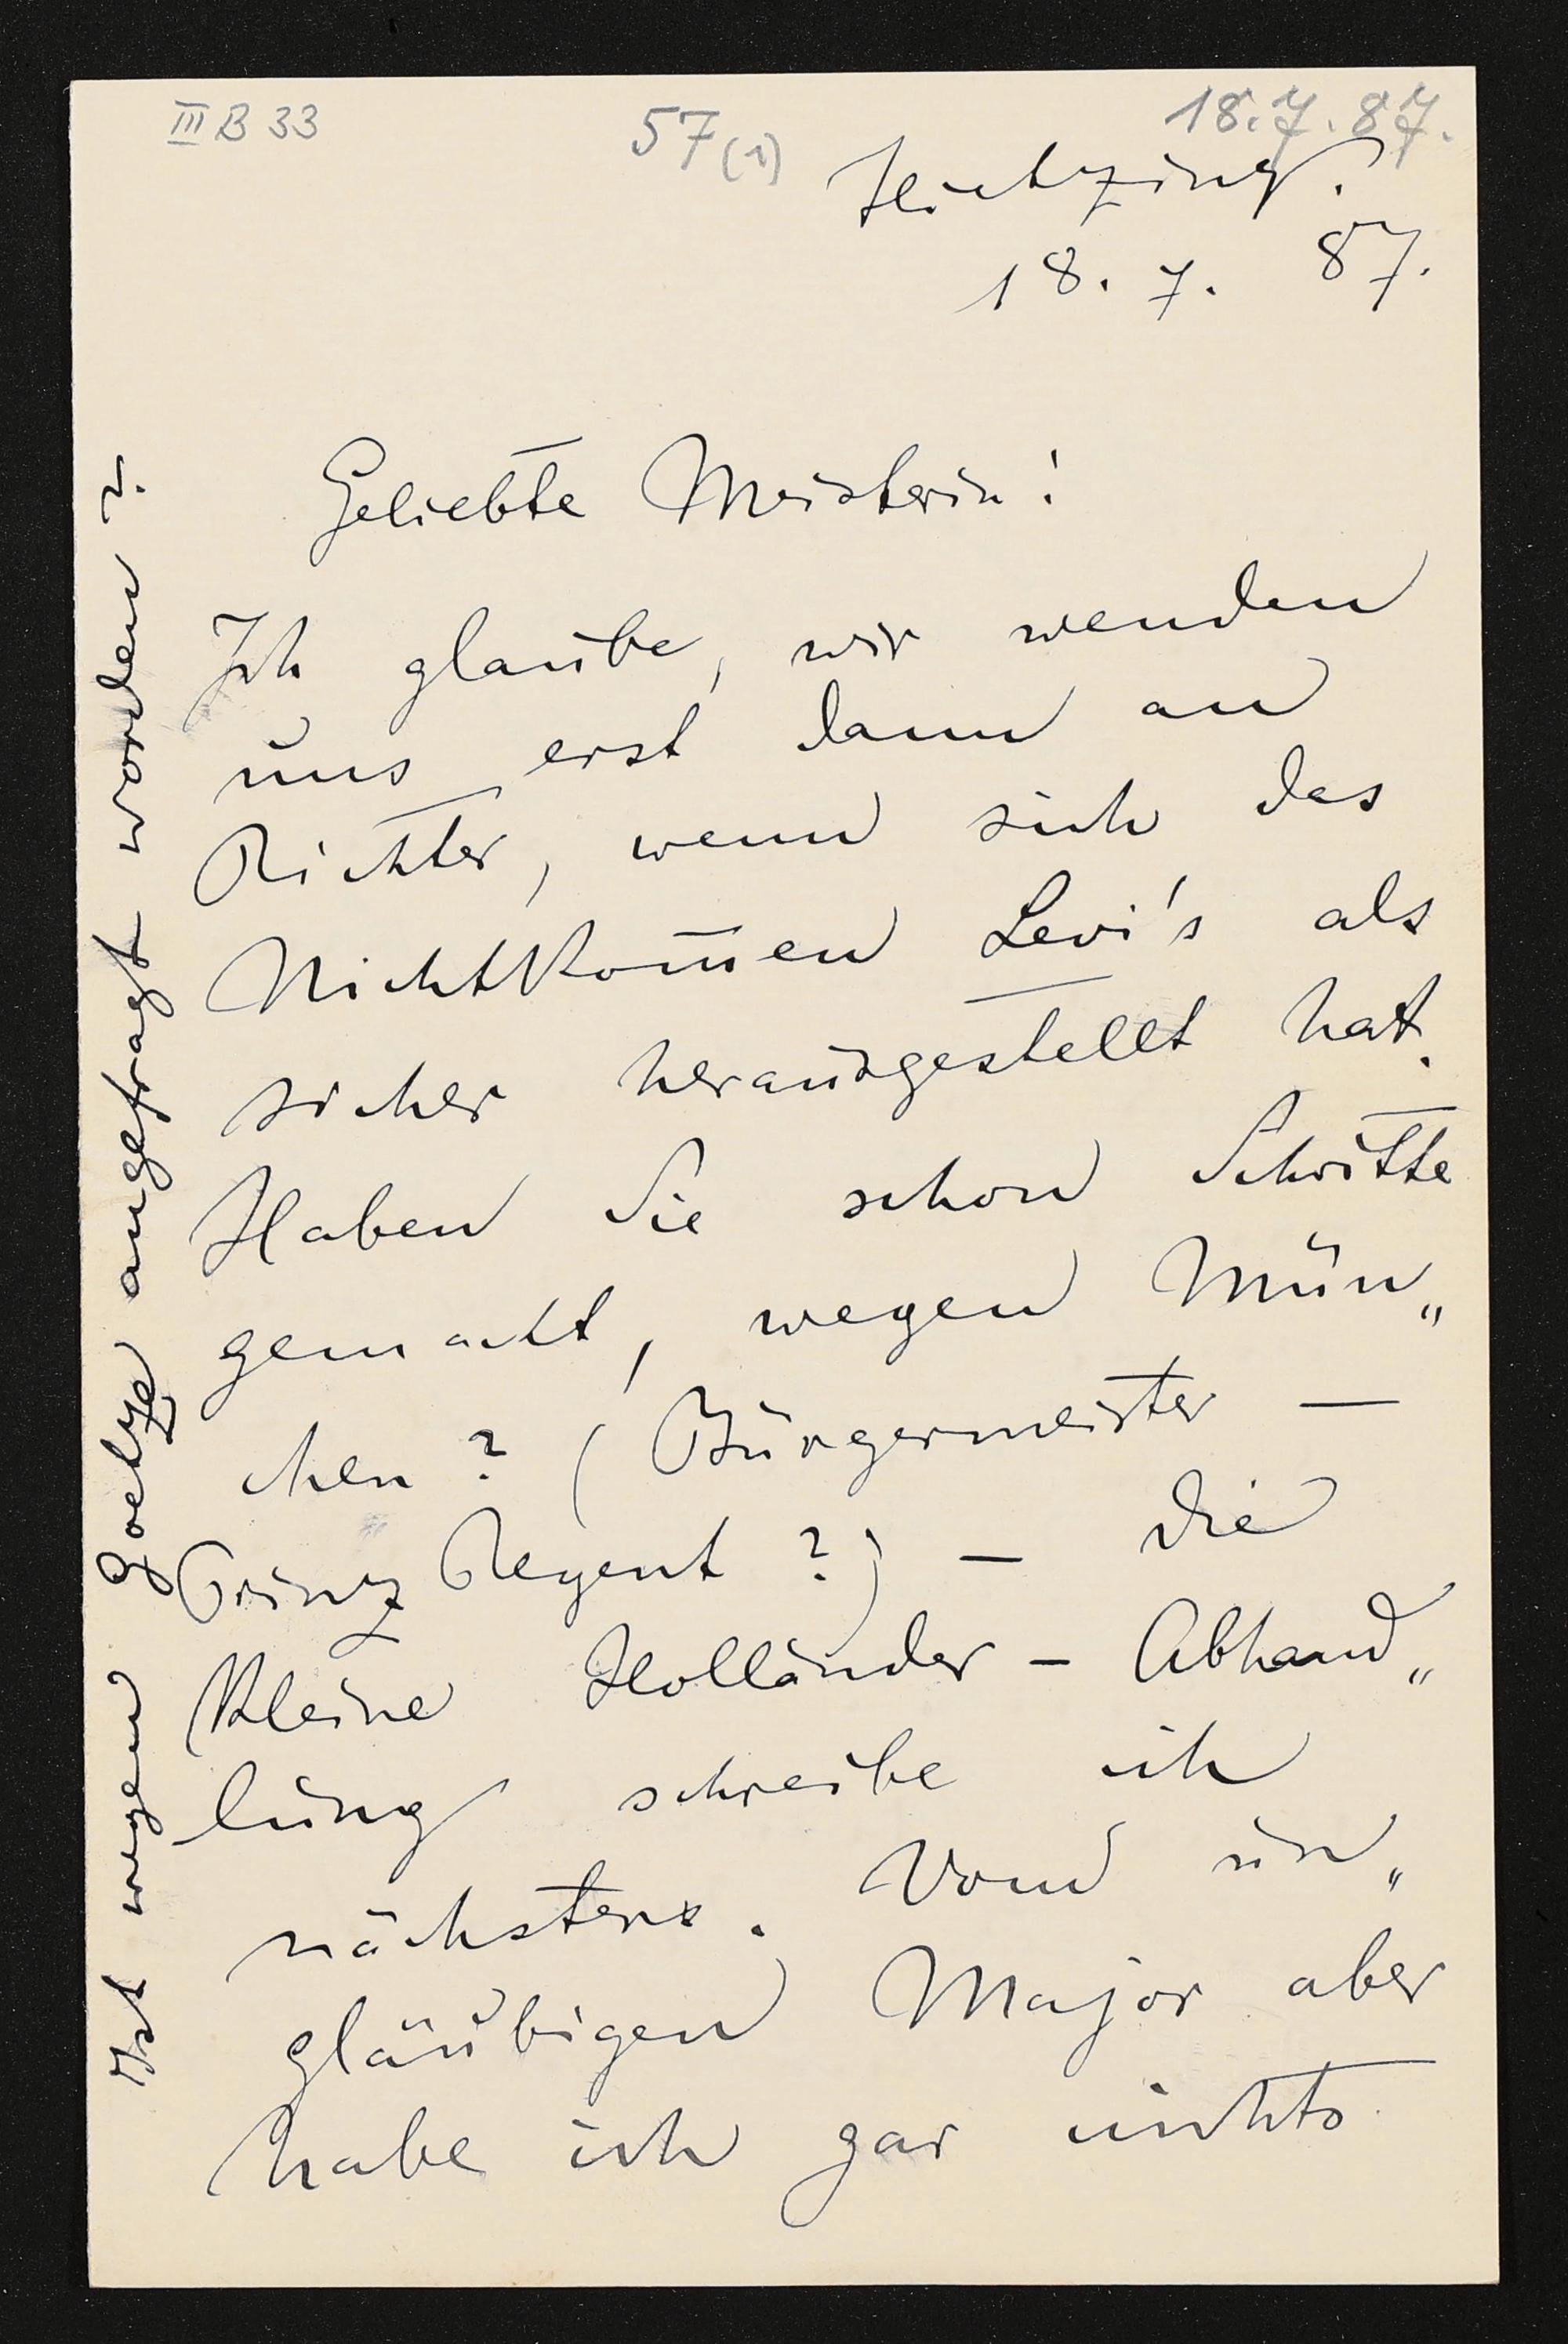 III B 33
57 (1)
18.7.87.
Hietzing.
18. 7. 87.
Geliebte Meisterin!
Ich glaube, wir wenden
uns erst dann an
Richter, wenn sich das
Nichtkom̄en Levi's als
sicher herausgestellt hat.
Haben Sie schon Schritte
gemacht, wegen Mün„
chen? (Bürgermeister —
Prinz Regent?) — die
kleine Holländer - Abhand„
lung schreibe ich
nächstens. Vom un„
gläubigen Major aber
habe ich gar nichts
Ist wegen Goetze angefragt worden?